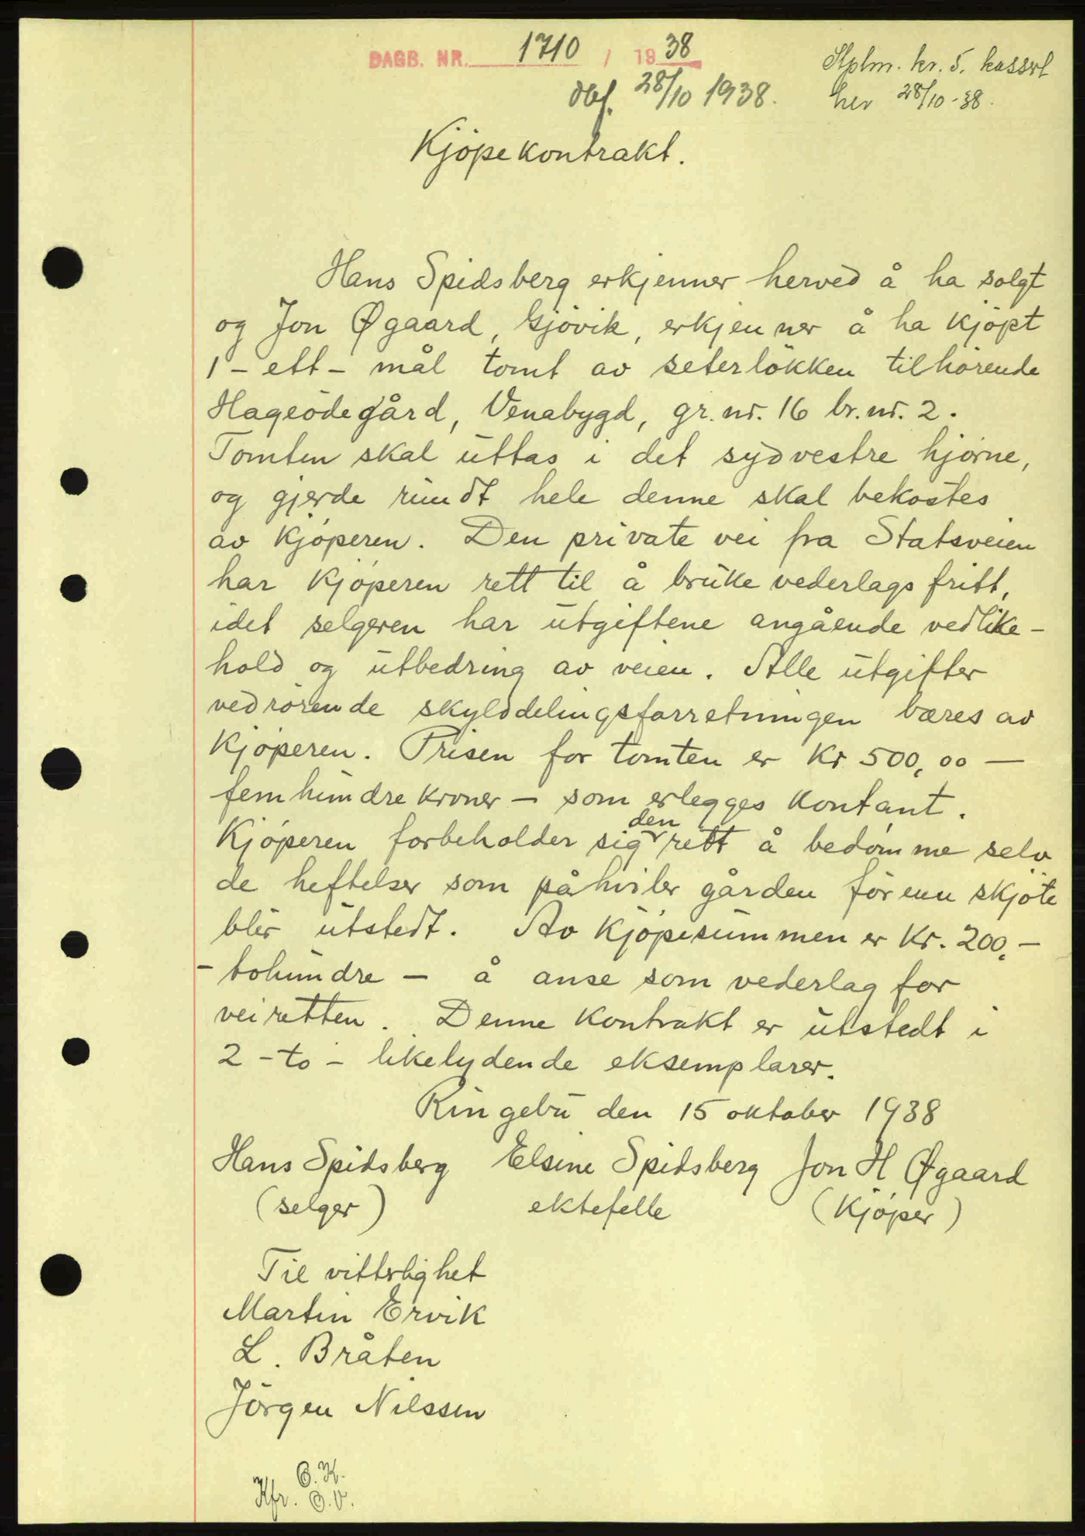 DAGB. NR. 1710 / 1938
dbf. 28/10 1938.
Stplm. kr. 5. kassert
her 28/10-38.
Kjöpekontrakt.
Hans Spidsberg erkjenner herved å ha solgt
og Jon Øgaard, Gjövik, erkjenner å ha kjöpt
1 - ett - mål tomt av seterlökken tilhörende
Hageödegård, Venabygd, gr. nr. 16 br. nr. 2.
Tomten skal uttas i det sydvestre hjörne,
og gjerde rundt hele denne skal bekostes
av kjöperen. Den private vei fra Statsveien
har kjöperen rett til å bruke vederlagsfritt,
idet selgeren har utgiftene angående vedlike-
hold og utbedring av veien. Alle utgifter
vedrörende skylddelingsforretningen bæres av
kjöperen. Prisen for tomten er kr 500,00 —
femhundre kroner — som erlegges kontant.
Kjöperen forbeholder sig den rett å bedömme selv
de heftelser som påhviler gården för enn skjöte
blir utstedt. Av kjöpesummen er kr. 200,-
- tohundre - å anse som vederlag for
veiretten. Denne kontrakt er utstedt i
2 - to - likelydende eksemplarer.
Ringebu den 15 oktober 1938
Hans Spidsberg Elsine Spidsberg Jon H Øgaard
(selger) ektefelle (kjöper)
Til vitterlighet
Martin Ervik
L. Bråten
Jörgen Nilssen
Kfr. O.K.
O.V.